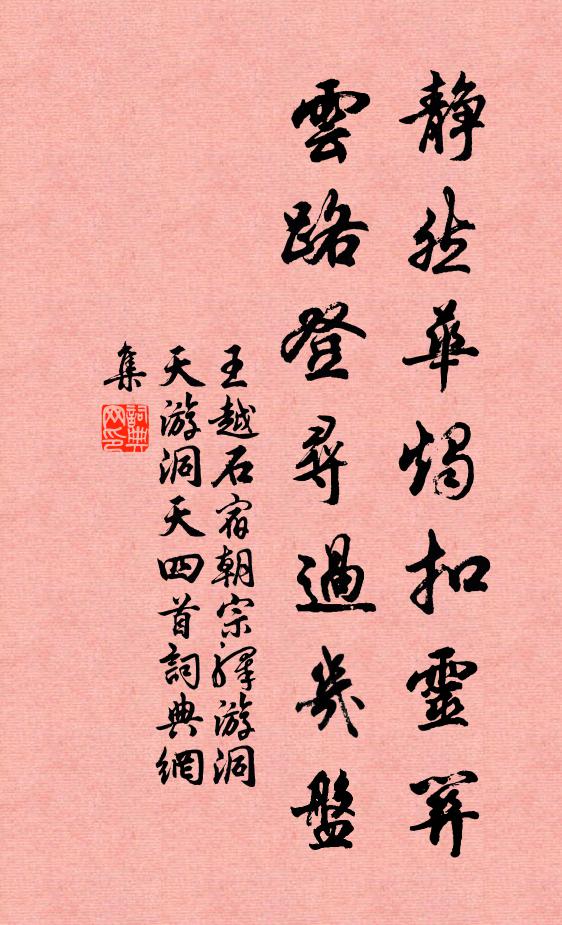 靜然華燭扣靈關
雲路登尋過幾盤
王越石宿朝宗驛游洞
天游洞天四首詞典網
集
詞典
网印